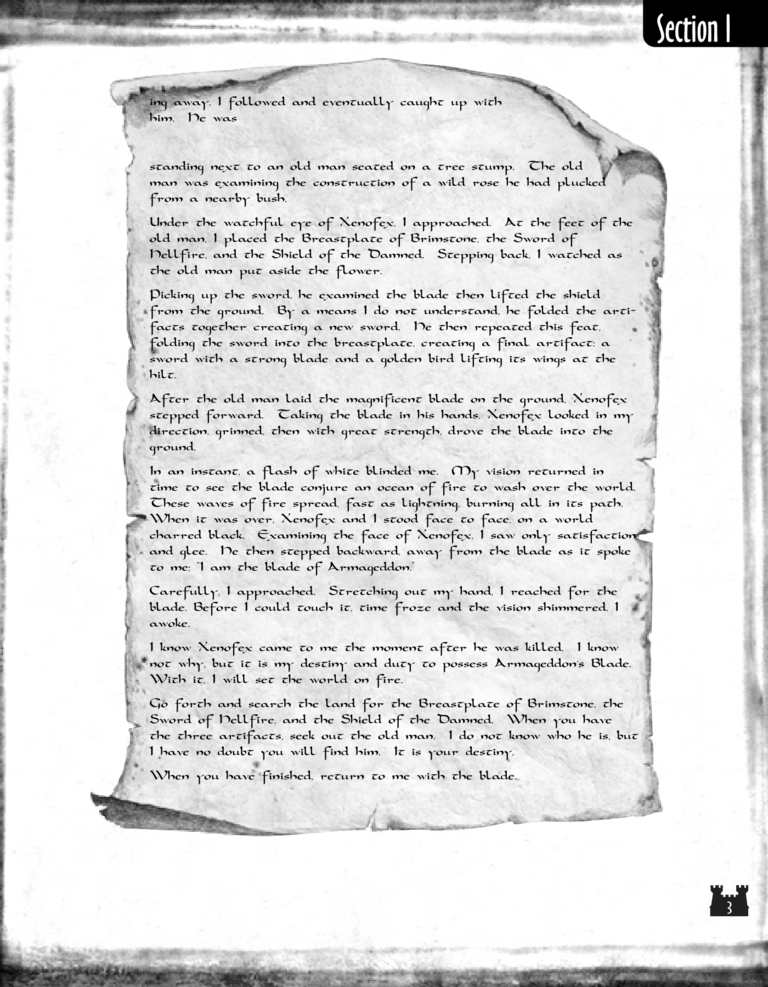 Section I
ing away, I followed and eventually caught up with
him.  He was
standing next to an old man seated on a tree stump.  The old
man was examining the construction of a wild rose he had plucked
from a nearby bush.
Under the watchful eye of Xenofex, I approached.  At the feet of the
old man, I placed the Breastplate of Brimstone, the Sword of
Hellfire, and the Shield of the Damned.  Stepping back, I watched as
the old man put aside the flower.
Picking up the sword, he examined the blade then lifted the shield
from the ground.  By a means I do not understand, he folded the arti-
facts together creating a new sword.  He then repeated this feat,
folding the sword into the breastplate, creating a final artifact: a
sword with a strong blade and a golden bird lifting its wings at the
hilt.
After the old man laid the magnificent blade on the ground, Xenofex
stepped forward.  Taking the blade in his hands, Xenofex looked in my
direction, grinned, then with great strength, drove the blade into the
ground.
In an instant, a flash of white blinded me.  My vision returned in
time to see the blade conjure an ocean of fire to wash over the world.
These waves of fire spread, fast as lightning, burning all in its path.
When it was over, Xenofex and I stood face to face, on a world
charred black.  Examining the face of Xenofex, I saw only satisfaction
and glee.  He then stepped backward, away from the blade as it spoke
to me: "I am the blade of Armageddon."
Carefully, I approached.  Stretching out my hand, I reached for the
blade. Before I could touch it, time froze and the vision shimmered. I
awoke.
I know Xenofex came to me the moment after he was killed.  I know
not why, but it is my destiny and duty to possess Armageddon's Blade.
With it, I will set the world on fire.
Go forth and search the land for the Breastplate of Brimstone, the
Sword of Hellfire, and the Shield of the Damned.  When you have
the three artifacts, seek out the old man.  I do not know who he is, but
I have no doubt you will find him.  It is your destiny.
When you have finished, return to me with the blade..
3